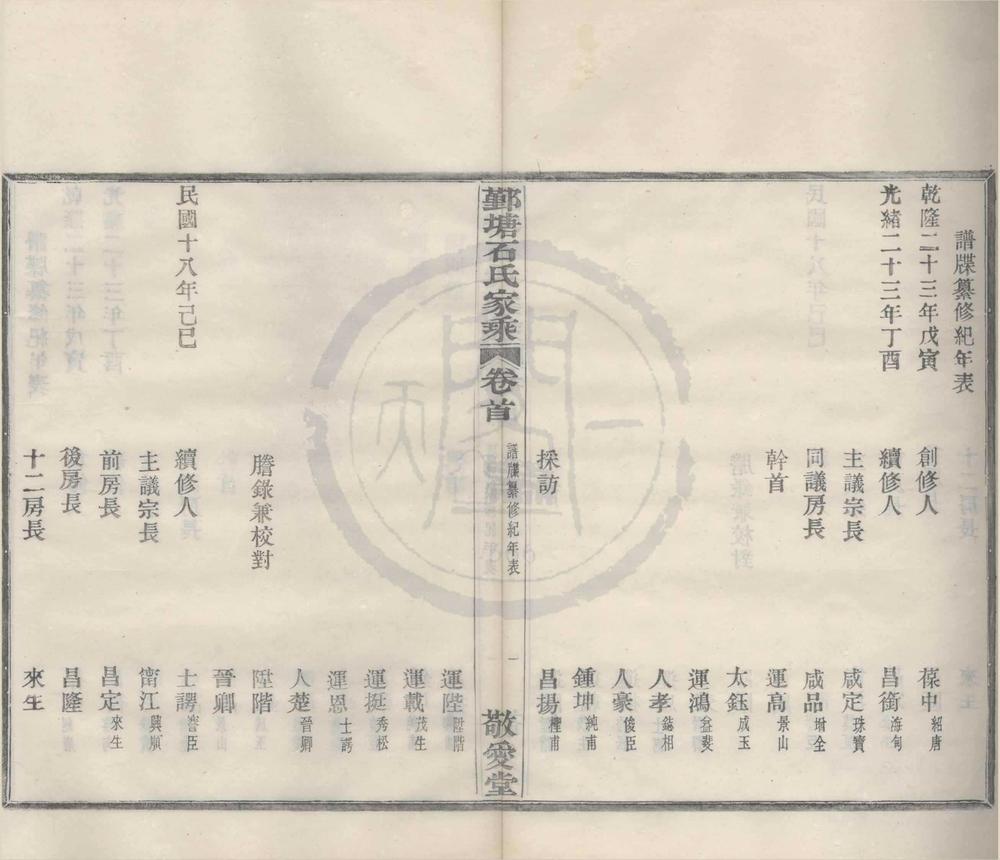 譜牒纂修紀年表
乾隆二十三年戊寅 創修人 葆中 紹唐
光緒二十三年丁酉 續修人 昌銜 海甸
主議宗長 咸定 珠寶
同議房長 咸品 增全
幹首 運高 景山
太鈺 成玉
運鴻 益斐
人孝 錫相
人豪 俊臣
鍾坤 純甫
採訪 昌揚 檀甫
鄞塘石氏家乘 卷首 譜牒纂修紀年表 一 敬愛堂
運陞 陞階
運載 茂生
運挺 秀松
運恩 士諤
人楚 晉卿
謄錄兼校對 陞階
晉卿
民國十八年己巳 續修人 士諤 謇臣
主議宗長 甯江 興順
前房長 昌定 來生
後房長 昌隆
十二房長 來生